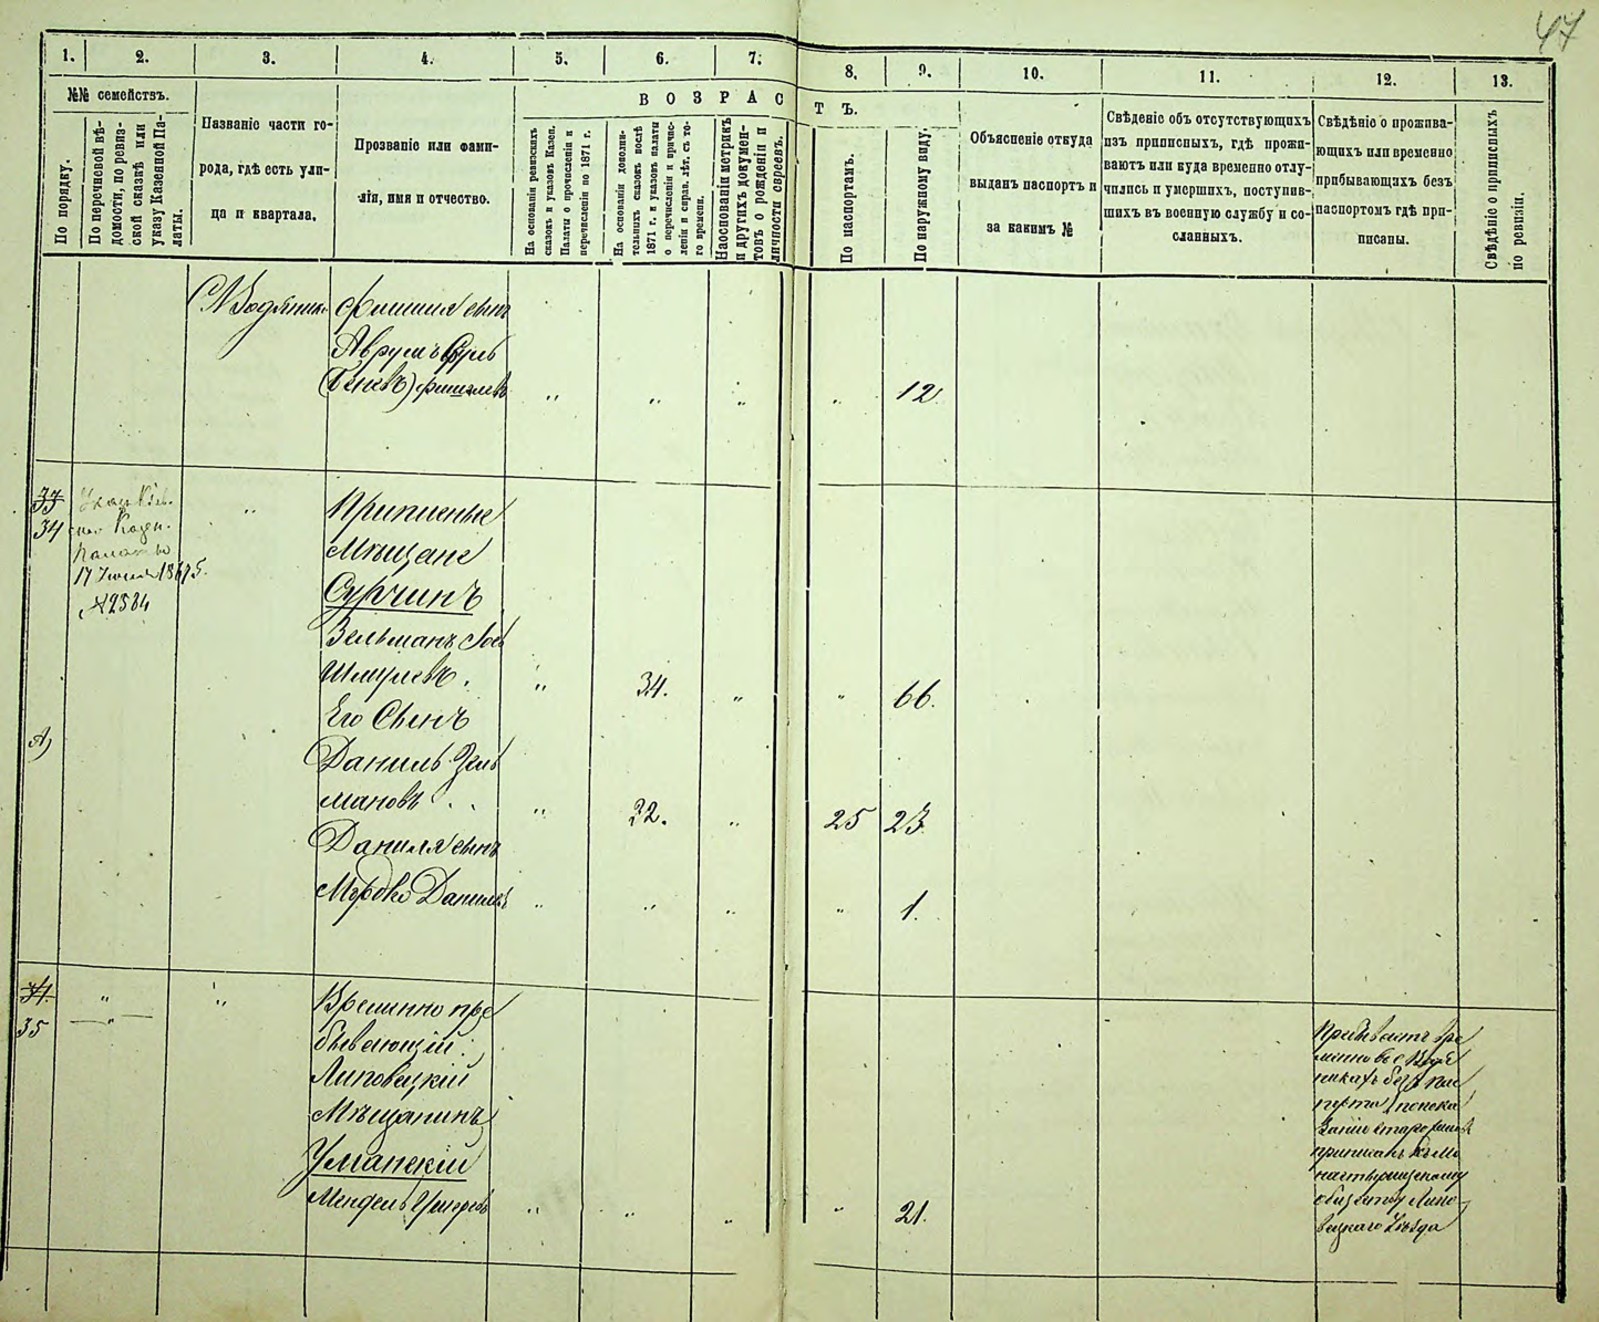 47
1. 2. 3. 4. 5. 6. 7. 8. 9. 10. 11. 12. 13.
№№ семействъ.
По порядку.
По перечневой вѣ-
домости, по ревиз-
ской сказкѣ или
указу Казенной Па-
латы.
Названіе части го-
рода, гдѣ есть ули-
ца и квартала.
Прозваніе или фами-
лія, имя и отчество.
ВОЗРАСТЪ.
На основаніи ревизскихъ
сказокъ и указовъ Казен.
Палаты о прочисленіи и
перечисленіи по 1871 г.
На основаніи дополни-
тельныхъ сказокъ послѣ
1871 г. и указовъ палаты
о перечисленіи и причис-
леніи и справ. лѣт. съ то-
го времени.
На основаніи метрикъ
и другихъ докумен-
товъ о рожденіи и
личности евреевъ.
По паспортамъ.
По наружному виду.
Объясненіе откуда
выданъ паспортъ и
за какимъ №
Свѣденіе объ отсутствующихъ
изъ приписныхъ, гдѣ прожи-
ваютъ или куда временно отлу-
чились и умершихъ, поступив-
шихъ въ военную службу и со-
сланныхъ.
Свѣдѣніе о прожива-
ющихъ или временно
прибывающихъ безъ
паспортомъ гдѣ при-
писаны.
Свѣдѣніе о приписныхъ
по ревизіи.
Фишиля сынъ
Аврумъ Сруль
(Беневъ) Фишилевъ " " " " 12.
33
34
Казен.
Палаты
17 1875.
№ 2584
"
Приписные
Мѣщане
Сурчинъ
Зельманъ Іос
Шмулевъ. " 34. " " 66.
Его Сынъ
А)
Даниль Зель
мановъ . . " 22. " 25 23.
Даниля сынъ
Мордко Данилевъ " " " " 1.
34.
35
" "
"
Временно пре
бывающій:
Липовецкій
Мѣщанинъ
Уманскій
Мендель " " " " 21.
Пребываетъ вре
менно въ с. Водя
никахъ безъ пас
порта, по показа
занію
приписанъ къ Мо
настырищскому
обществу Липо-
вецкаго Уѣзда